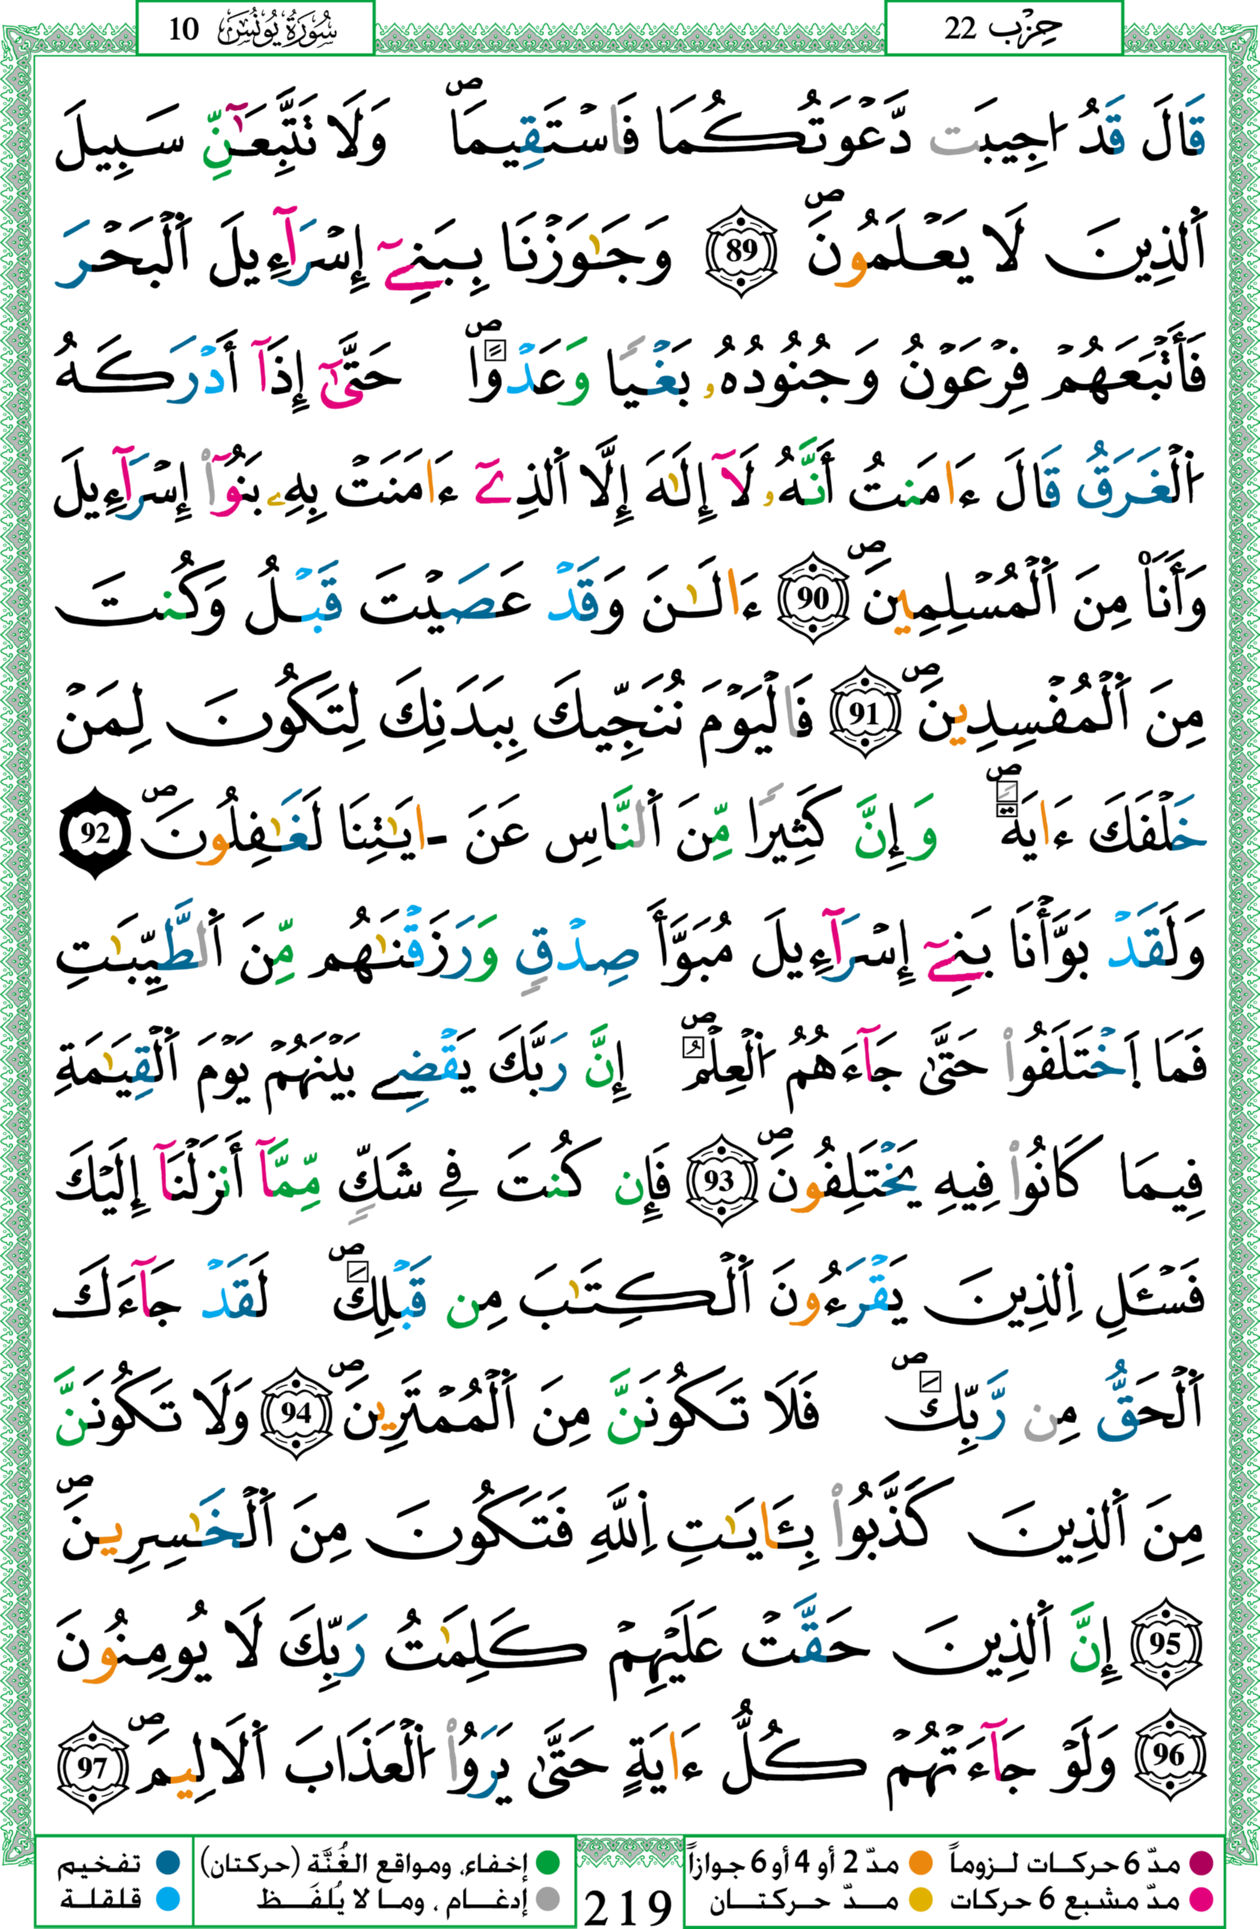 حِزْب 22
سُورَةُ يُونُسَ 10
قَالَ قَدُ ا۟جِيبَت دَّعْوَتُكُمَا فَاسْتَقِيمَاۖ وَلَا تَتَّبِعَٰٓنِّ سَبِيلَ
اَ۬لذِينَ لَا يَعْلَمُونَۖ 89 وَجَٰوَزْنَا بِبَنِےٓ إِسْرَآءِيلَ اَ۬لْبَحْرَ
فَأَتْبَعَهُمْ فِرْعَوْنُ وَجُنُودُهُۥ بَغْياٗ وَعَدْواًۖ حَتَّىٰٓ إِذَآ أَدْرَكَهُ
اُ۬لْغَرَقُ قَالَ ءَامَنتُ أَنَّهُۥ لَآ إِلَٰهَ إِلَّا اَ۬لذِےٓ ءَامَنَتْ بِهِۦ بَنُوٓاْ إِسْرَآءِيلَ
وَأَنَا۠ مِنَ اَ۬لْمُسْلِمِينَۖ 90 ءَالَٰنَ وَقَدْ عَصَيْتَ قَبْلُ وَكُنتَ
مِنَ اَ۬لْمُفْسِدِينَۖ 91 فَالْيَوْمَ نُنَجِّيكَ بِبَدَنِكَ لِتَكُونَ لِمَنْ
خَلْفَكَ ءَايَةٗۖ وَإِنَّ كَثِيراٗ مِّنَ اَ۬لنَّاسِ عَنَ ـايَٰتِنَا لَغَٰفِلُونَۖ 92
وَلَقَدْ بَوَّأْنَا بَنِےٓ إِسْرَآءِيلَ مُبَوَّأَ صِدْقٖ وَرَزَقْنَٰهُم مِّنَ اَ۬لطَّيِّبَٰتِ
فَمَا اَ۪خْتَلَفُواْ حَتَّىٰ جَآءَهُمُ اُ۬لْعِلْمُۖ إِنَّ رَبَّكَ يَقْضِے بَيْنَهُمْ يَوْمَ اَ۬لْقِيَٰمَةِ
فِيمَا كَانُواْ فِيهِ يَخْتَلِفُونَۖ 93 فَإِن كُنتَ فِے شَكّٖ مِّمَّآ أَنزَلْنَآ إِلَيْكَ
فَسْـَٔلِ اِ۬لذِينَ يَقْرَءُونَ اَ۬لْكِتَٰبَ مِن قَبْلِكَۖ لَقَدْ جَآءَكَ
اَ۬لْحَقُّ مِن رَّبِّكَۖ فَلَا تَكُونَنَّ مِنَ اَ۬لْمُمْتَرِينَۖ 94 وَلَا تَكُونَنَّ
مِنَ اَ۬لذِينَ كَذَّبُواْ بِـَٔايَٰتِ اِ۬للَّهِ فَتَكُونَ مِنَ اَ۬لْخَٰسِرِينَۖ
95 إِنَّ اَ۬لذِينَ حَقَّتْ عَلَيْهِمْ كَلِمَٰتُ رَبِّكَ لَا يُومِنُونَ
96 وَلَوْ جَآءَتْهُمْ كُلُّ ءَايَةٍ حَتَّىٰ يَرَوُاْ اُ۬لْعَذَابَ اَ۬لَالِيمَۖ 97
مدّ 6 حركات لـزوماً مدّ 2 أو 4 أو 6 جوازاً
مدّ مشبع 6 حركات مــدّ حــركتــان
219
إخفاء، ومواقع الغُنَّة (حركتان) تفخيم
إدغـــام ، ومـا لا يُلفَــظ قلقلة